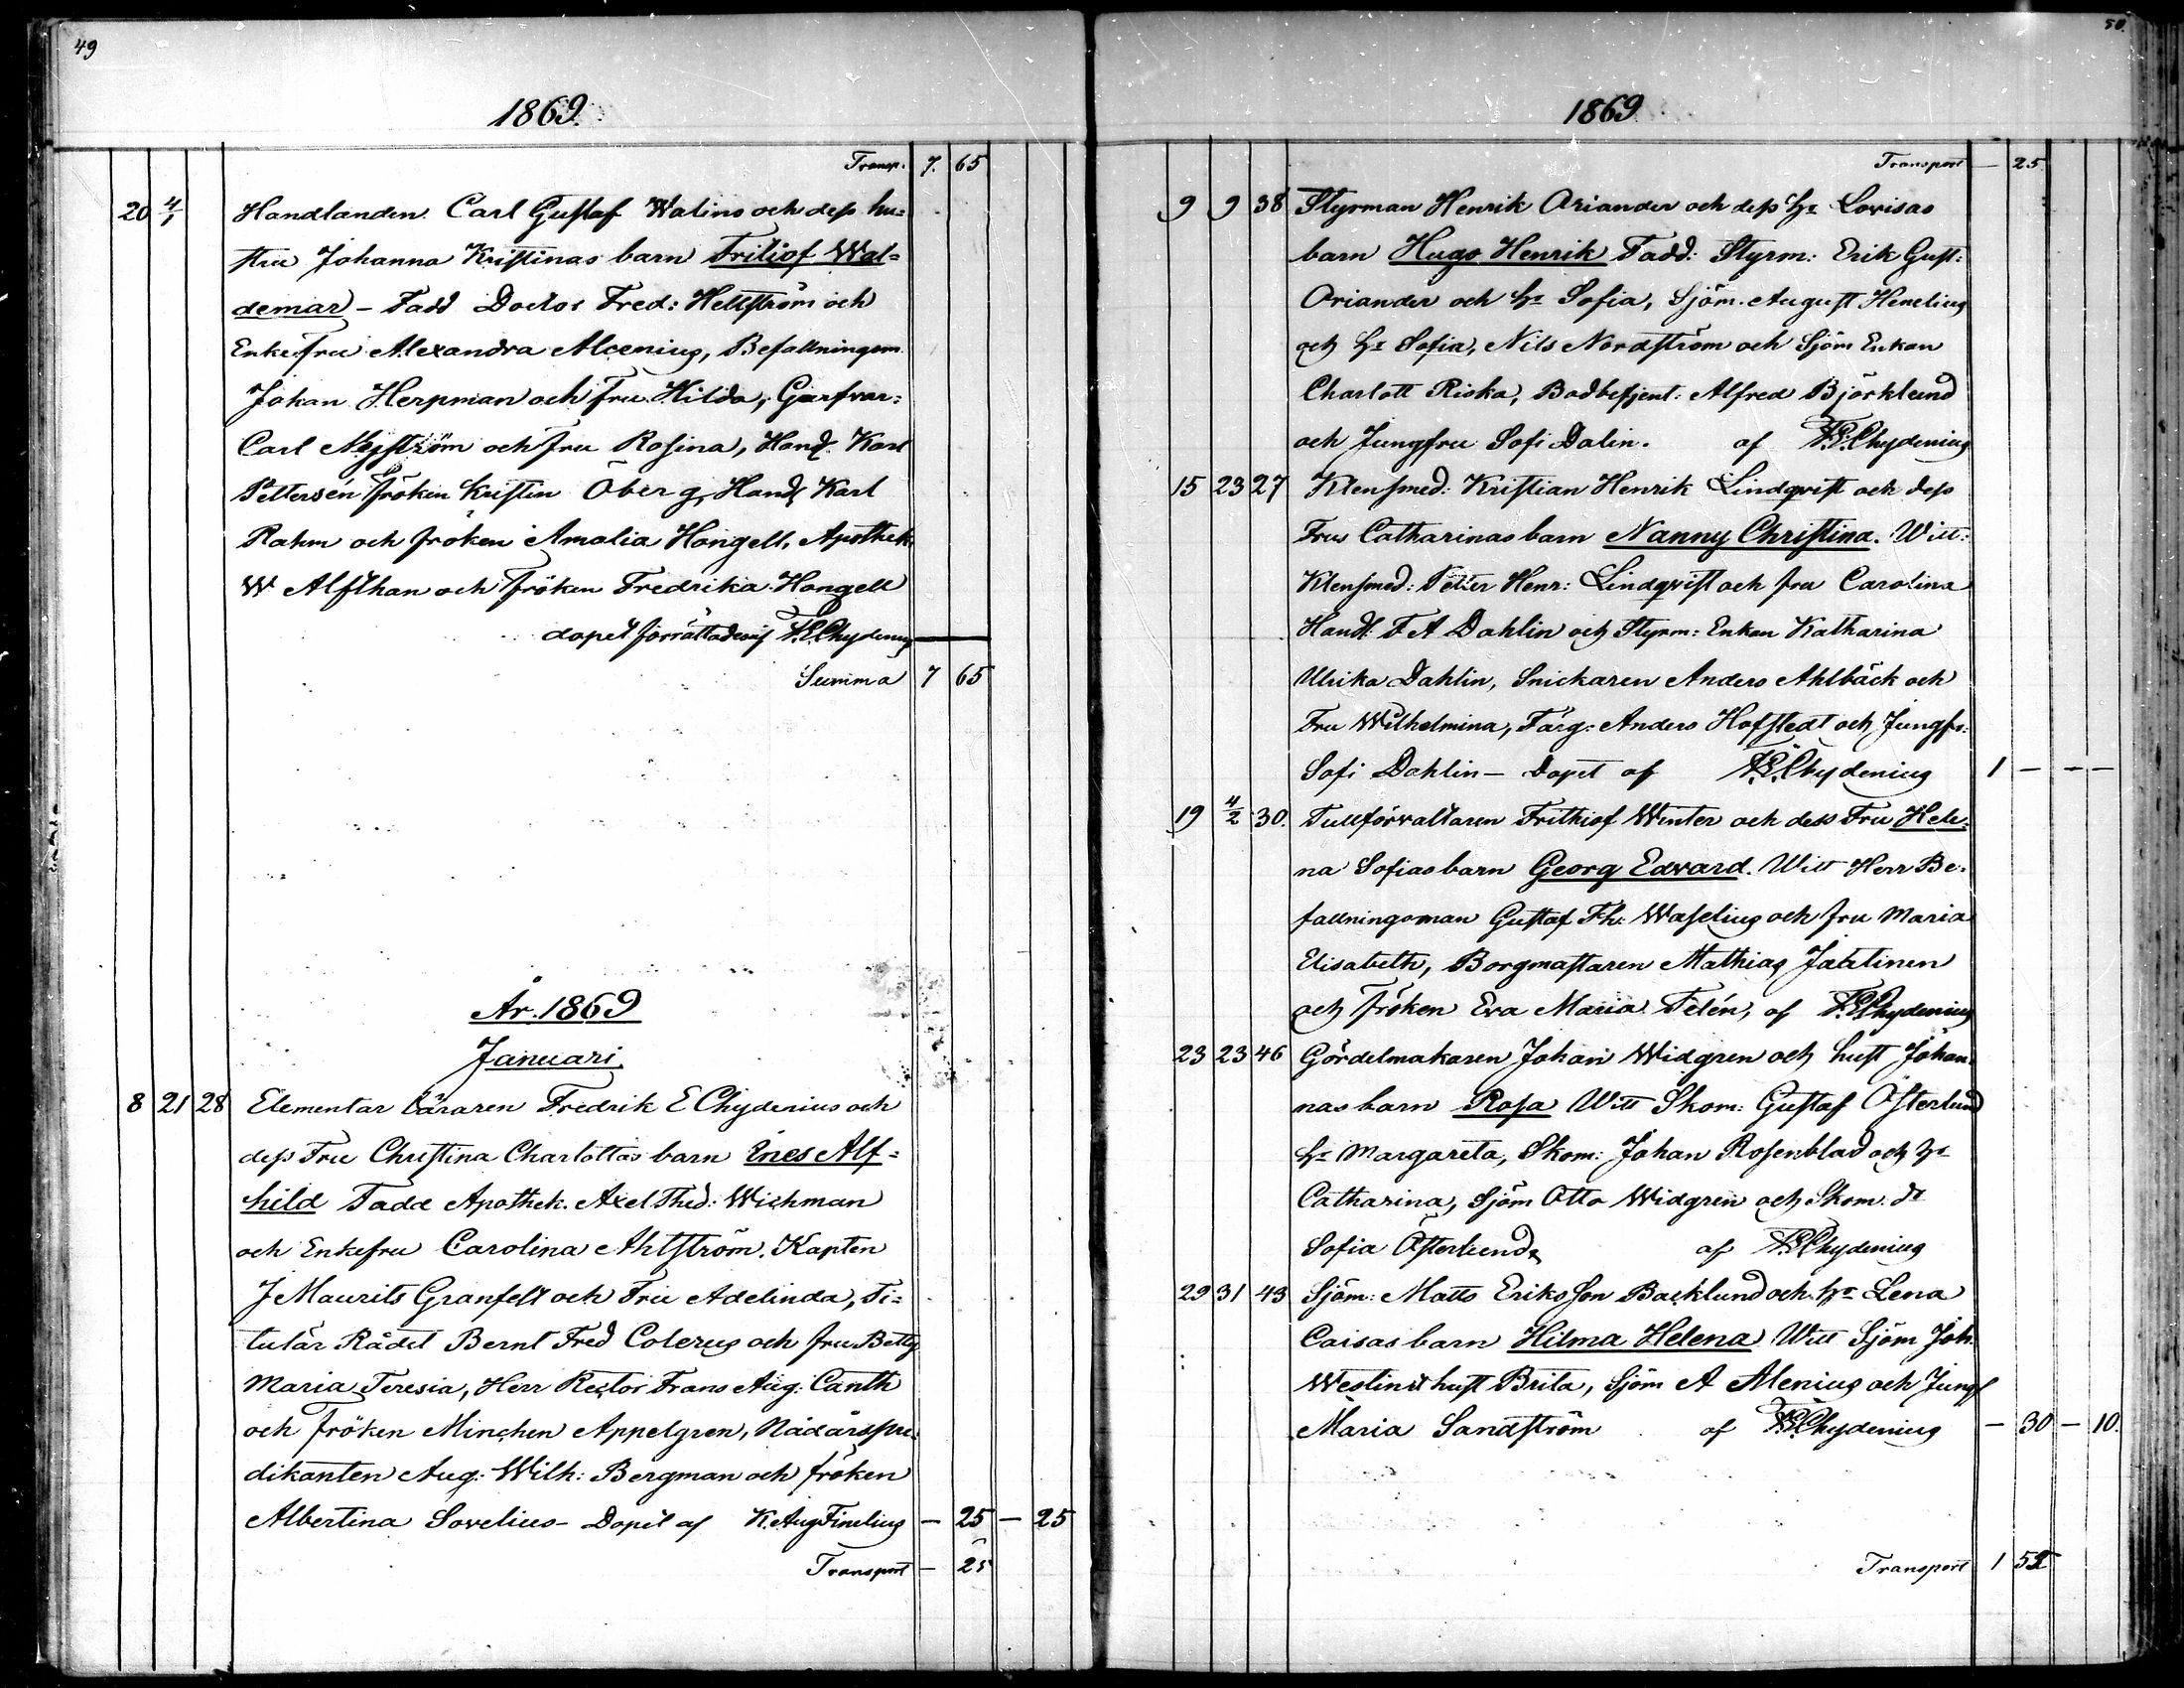 49
1869.
Transp. 7. 65
20 4/1 Handlanden Carl Gustaf Walins och dess hu=
stru Johanna Kristinas barn Fritiof Wal=
demar - Fadd Doctor Fred: Hellström och
Enkefru Alexandra Alcenius, Befallningsm.
Johan Herpman och fru Hilda, Garfvar=
Carl Nyström och fru Rosina, Handl. Karl
Pettersén fröken Kristin Öberg, Handl Karl
Rahm och froken Amalia Hongell, Apothek.
W Alfthan och fröken Fredrika Hongell
dopet förrättades af F.E.Chydenius
Summa 7 65
År. 1869
Januari.
8 21 28 Elementar läraren Fredrik E Chydenius och
dess Fru Christina Charlottas barn Ines Alf=
hild Fadd Apothek. Axel Thed: Wichman
och Enkefru Carolina Ahlström. Kapten
J Maurits Granfelt och Fru Adelinda, Ti=
tulär Rådet Bernt Fred Colerus och fru Betty
Maria Teresia, Herr Rector Frans Aug: Canth
och fröken Minchen Appelgren, Nådårspre=
dikanten Aug: Wilh: Bergman och fröken
Albertina Sovelius - Dopet af K. Aug Finelius - 25 - 25
Transport - 25
50.
1869
Transport - 25
9 9 38 Styrman Henrik Oriander och dess hr Lovisas
barn Hugo Henrik Fadd: Styrm: Erik Gust:
Oriander och hr Sofia, Sjöm. August Henelius
och hr Sofia, Nils Nordström och Sjöm Enkan
Charlott Riska, Badbetjent: Alfred Björklund
och Jungfru Sofi Dalin. af F.E.Chydenius
15 23 27 Klensmed: Kristian Henrik Lindqvist och dess
Frus Catharinas barn Nanny Christina. Witt:
Klensmed: Petter Henr: Lindqvist och fru Carolina
Handl: F A Dahlin och Styrm: Enkan Katharina
Ulrika Dahlin, Snickaren Anders Ahlbäck och
Fru Wilhelmina, Färg: Anders Hofstedt och Jungfr:
Sofi Dahlin - Dopet af F.E.Chydenius 1 - - -
19 4/2 30. Tullförvaltaren Frithiof Winter och dess Fru Hele=
na Sofias barn Georg Edvard. Witt Herr Be=
fallningsman Gustaf Fh: Waselius och fru Maria
Elisabeth, Borgmästaren Mathias Jaatinen
och fröken Eva Maria Telén, af F.E.Chydenius
23 23 46 Gördelmakaren Johan Widgren och hust Johan=
nas barn Rosa Witt Skom: Gustaf Österlund
hr Margareta, Skom: Johan Rosenblad och hr
Catharina, Sjöm Otto Widgren och Skom. dr
Sofia Österlund, af F.E.Chydenius
29 31 43 Sjöm: Matts Eriksson Backlund och hr Lena
Caisas barn Hilma Helena Witt Sjöm Joh.
Westin & hust Brita, Sjöm A Alenius och Jungf
Maria Sandström af F.E.Chydenius - 30 - 10.
Transport 1 52